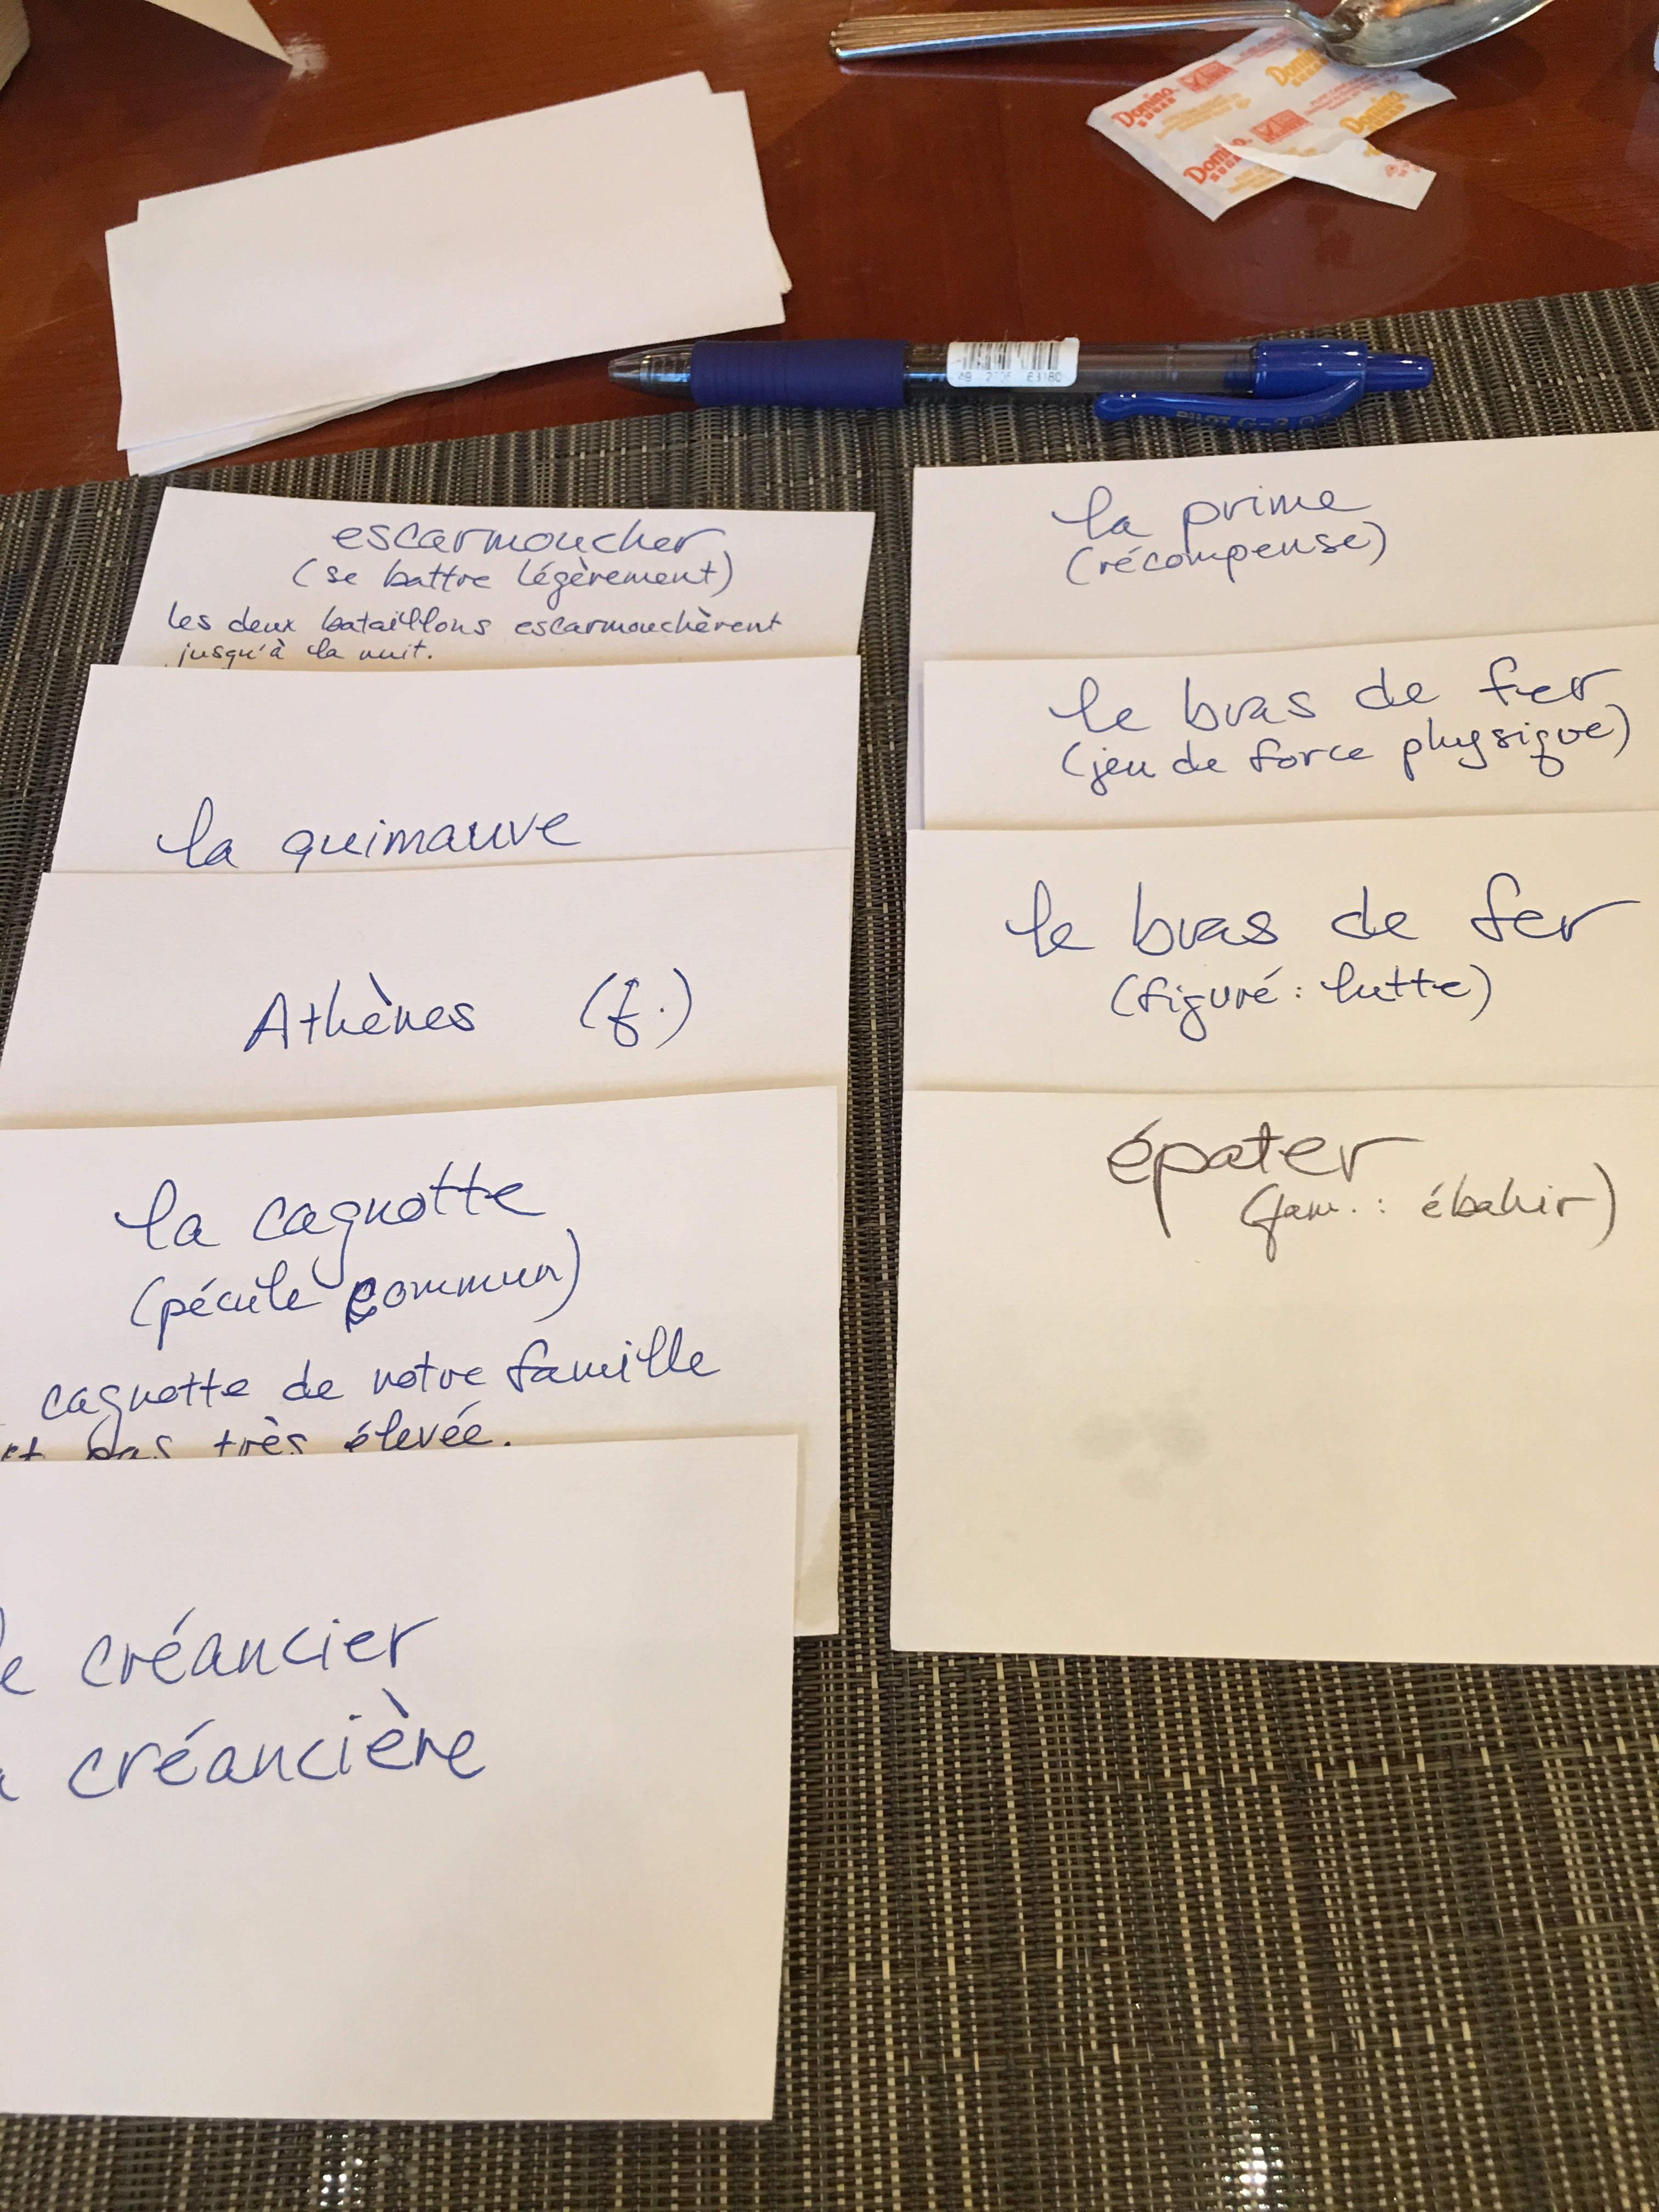 Domino
SUGAR
Domino
Domino
SUGAR
Domino
SUGAR
PILOT G-2
escarmoucher
(se battre légèrement)
les deux bataillons escarmouchèrent
jusqu'à la nuit.
la guimauve
Athènes (f.)
la cagnotte
(pécule commun)
cagnotte de notre famille
pas très élevée.
créancier
créancière
la prime
(récompense)
le bras de fer
(jeu de force physique)
le bras de fer
(figuré : lutte)
épater
(fam. : ébahir)